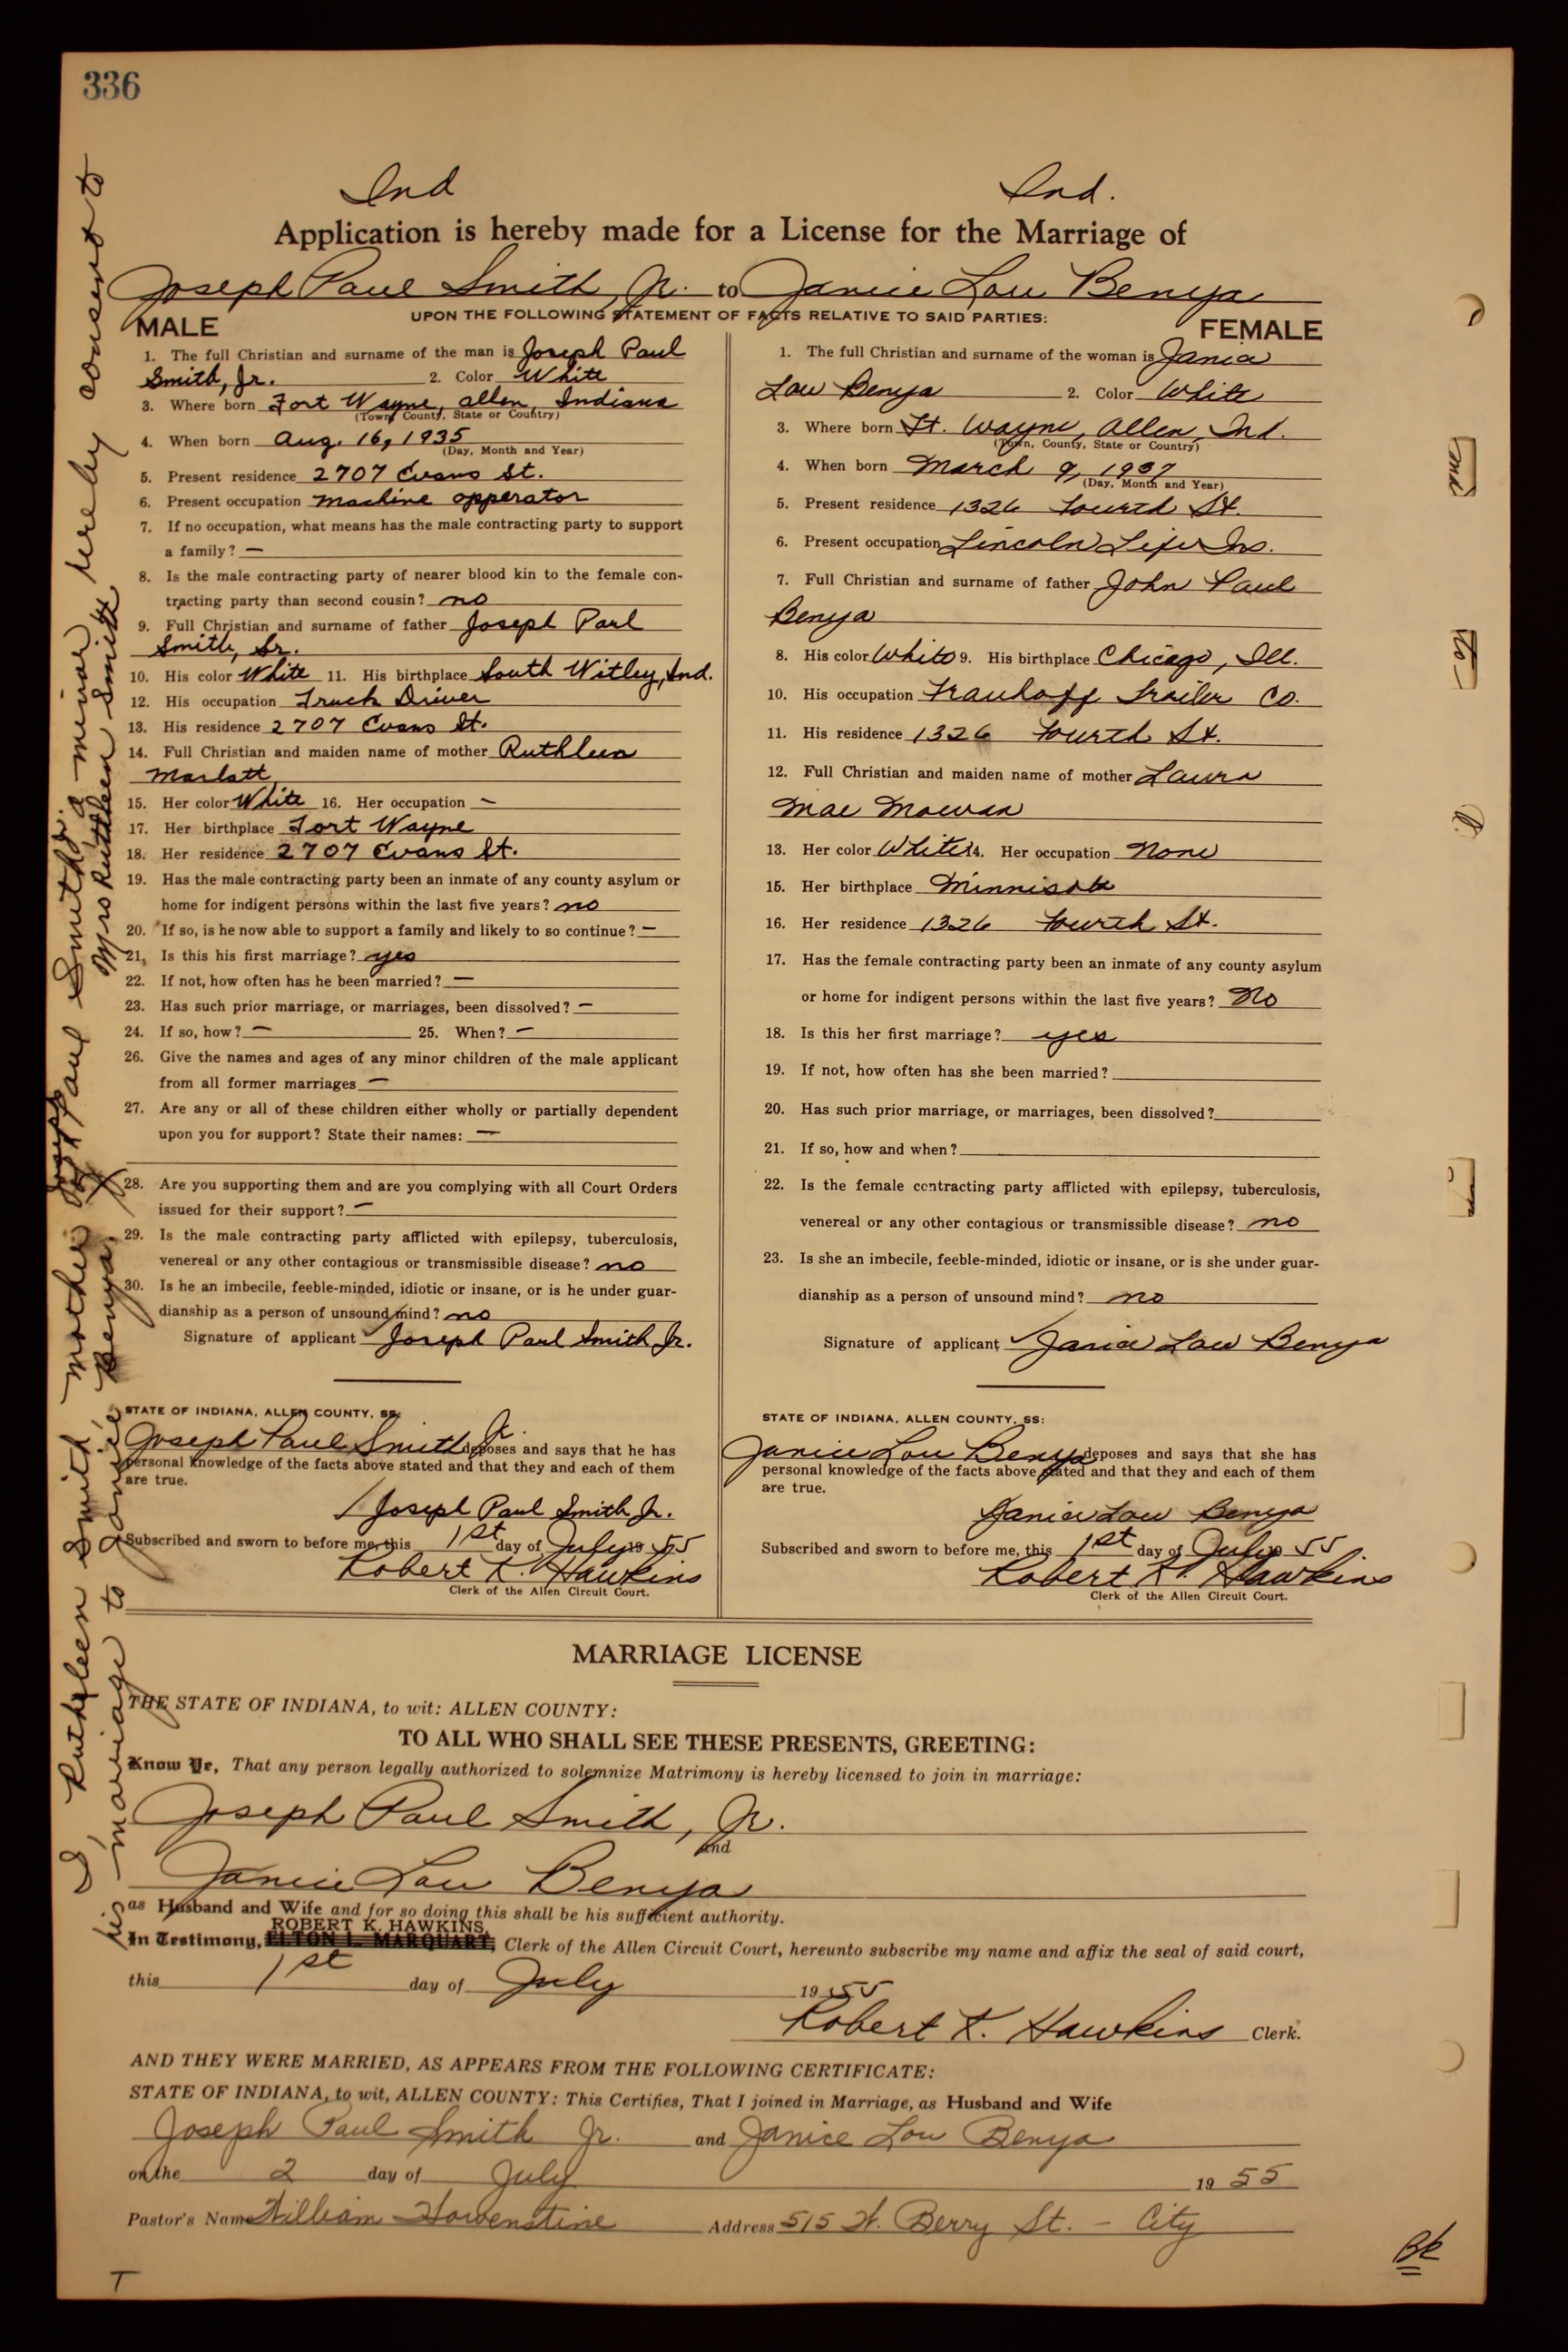 336
Ind Ind.
Application is hereby made for a License for the Marriage of
Joseph Paul Smith, Jr. to Janice Lou Benya
UPON THE FOLLOWING STATEMENT OF FACTS RELATIVE TO SAID PARTIES:
MALE
1. The full Christian and surname of the man is Joseph Paul
Smith, Jr. 2. Color White
3. Where born Fort Wayne, Allen, Indiana
(Town, County, State or Country)
4. When born Aug. 16, 1935
(Day, Month and Year)
5. Present residence 2707 Evans St.
6. Present occupation Machine opperator
7. If no occupation, what means has the male contracting party to support
a family? —
8. Is the male contracting party of nearer blood kin to the female con-
tracting party than second cousin? no
9. Full Christian and surname of father Joseph Paul
Smith, Sr.
10. His color White 11. His birthplace South Witley, Ind.
12. His occupation Truck Driver
13. His residence 2707 Evans St.
14. Full Christian and maiden name of mother Ruthleen
Marlatt
15. Her color White 16. Her occupation —
17. Her birthplace Fort Wayne
18. Her residence 2707 Evans St.
19. Has the male contracting party been an inmate of any county asylum or
home for indigent persons within the last five years? no
20. If so, is he now able to support a family and likely to so continue? —
21. Is this his first marriage? yes
22. If not, how often has he been married? —
23. Has such prior marriage, or marriages, been dissolved? —
24. If so, how? — 25. When? —
26. Give the names and ages of any minor children of the male applicant
from all former marriages —
27. Are any or all of these children either wholly or partially dependent
upon you for support? State their names: —
28. Are you supporting them and are you complying with all Court Orders
issued for their support? —
29. Is the male contracting party afflicted with epilepsy, tuberculosis,
venereal or any other contagious or transmissible disease? no
30. Is he an imbecile, feeble-minded, idiotic or insane, or is he under guar-
dianship as a person of unsound mind? no
Signature of applicant Joseph Paul Smith Jr.
STATE OF INDIANA, ALLEN COUNTY, SS:
Joseph Paul Smith Jr. deposes and says that he has
personal knowledge of the facts above stated and that they and each of them
are true.
Joseph Paul Smith Jr.
Subscribed and sworn to before me, this 1st day of July 19 55
Robert K. Hawkins
Clerk of the Allen Circuit Court.
FEMALE
1. The full Christian and surname of the woman is Janice
Lou Benya 2. Color White
3. Where born Ft. Wayne, Allen, Ind.
(Town, County, State or Country)
4. When born March 9, 1937
(Day, Month and Year)
5. Present residence 1326 Fourth St.
6. Present occupation Lincoln Life Ins.
7. Full Christian and surname of father John Paul
Benya
8. His color White 9. His birthplace Chicago, Ill.
10. His occupation Frauhoff Trailer Co.
11. His residence 1326 Fourth St.
12. Full Christian and maiden name of mother Laura
Mae Mowan
13. Her color White 14. Her occupation None
15. Her birthplace Minnisota
16. Her residence 1326 Fourth St.
17. Has the female contracting party been an inmate of any county asylum
or home for indigent persons within the last five years? No
18. Is this her first marriage? yes
19. If not, how often has she been married?
20. Has such prior marriage, or marriages, been dissolved?
21. If so, how and when?
22. Is the female contracting party afflicted with epilepsy, tuberculosis,
venereal or any other contagious or transmissible disease? no
23. Is she an imbecile, feeble-minded, idiotic or insane, or is she under guar-
dianship as a person of unsound mind? no
Signature of applicant Janice Lou Benya
STATE OF INDIANA, ALLEN COUNTY, SS:
Janice Lou Benya deposes and says that she has
personal knowledge of the facts above stated and that they and each of them
are true.
Janice Lou Benya
Subscribed and sworn to before me, this 1st day of July 55
Robert K. Hawkins
Clerk of the Allen Circuit Court.
MARRIAGE LICENSE
THE STATE OF INDIANA, to wit: ALLEN COUNTY:
TO ALL WHO SHALL SEE THESE PRESENTS, GREETING:
Know Ye, That any person legally authorized to solemnize Matrimony is hereby licensed to join in marriage:
Joseph Paul Smith, Jr.
and
Janice Lou Benya
as Husband and Wife and for so doing this shall be his sufficient authority.
ROBERT K. HAWKINS,
In Testimony, ELTON L. MARQUART, Clerk of the Allen Circuit Court, hereunto subscribe my name and affix the seal of said court,
this 1st day of July 19 55
Robert K. Hawkins Clerk.
AND THEY WERE MARRIED, AS APPEARS FROM THE FOLLOWING CERTIFICATE:
STATE OF INDIANA, to wit, ALLEN COUNTY: This Certifies, That I joined in Marriage, as Husband and Wife
Joseph Paul Smith Jr. and Janice Lou Benya
on the 2 day of July 19 55
Pastor's Name William Howenstine Address 515 W. Berry St. - City
T
Bk
I Ruthleen Smith mother of Joseph Paul Smith a minor hereby consent to
his marriage to Janice Benya. X Mrs Ruthleen Smith